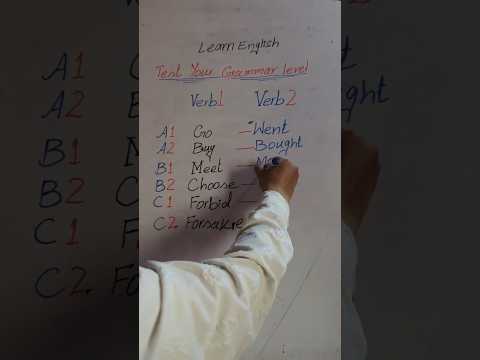 Learn English
Test Your Grammar level
Verb1 Verb2
A1 Go — Went
A2 Buy — Bought
B1 Meet — Me
B2 Choose —
C1 Forbid —
C2. Forsake